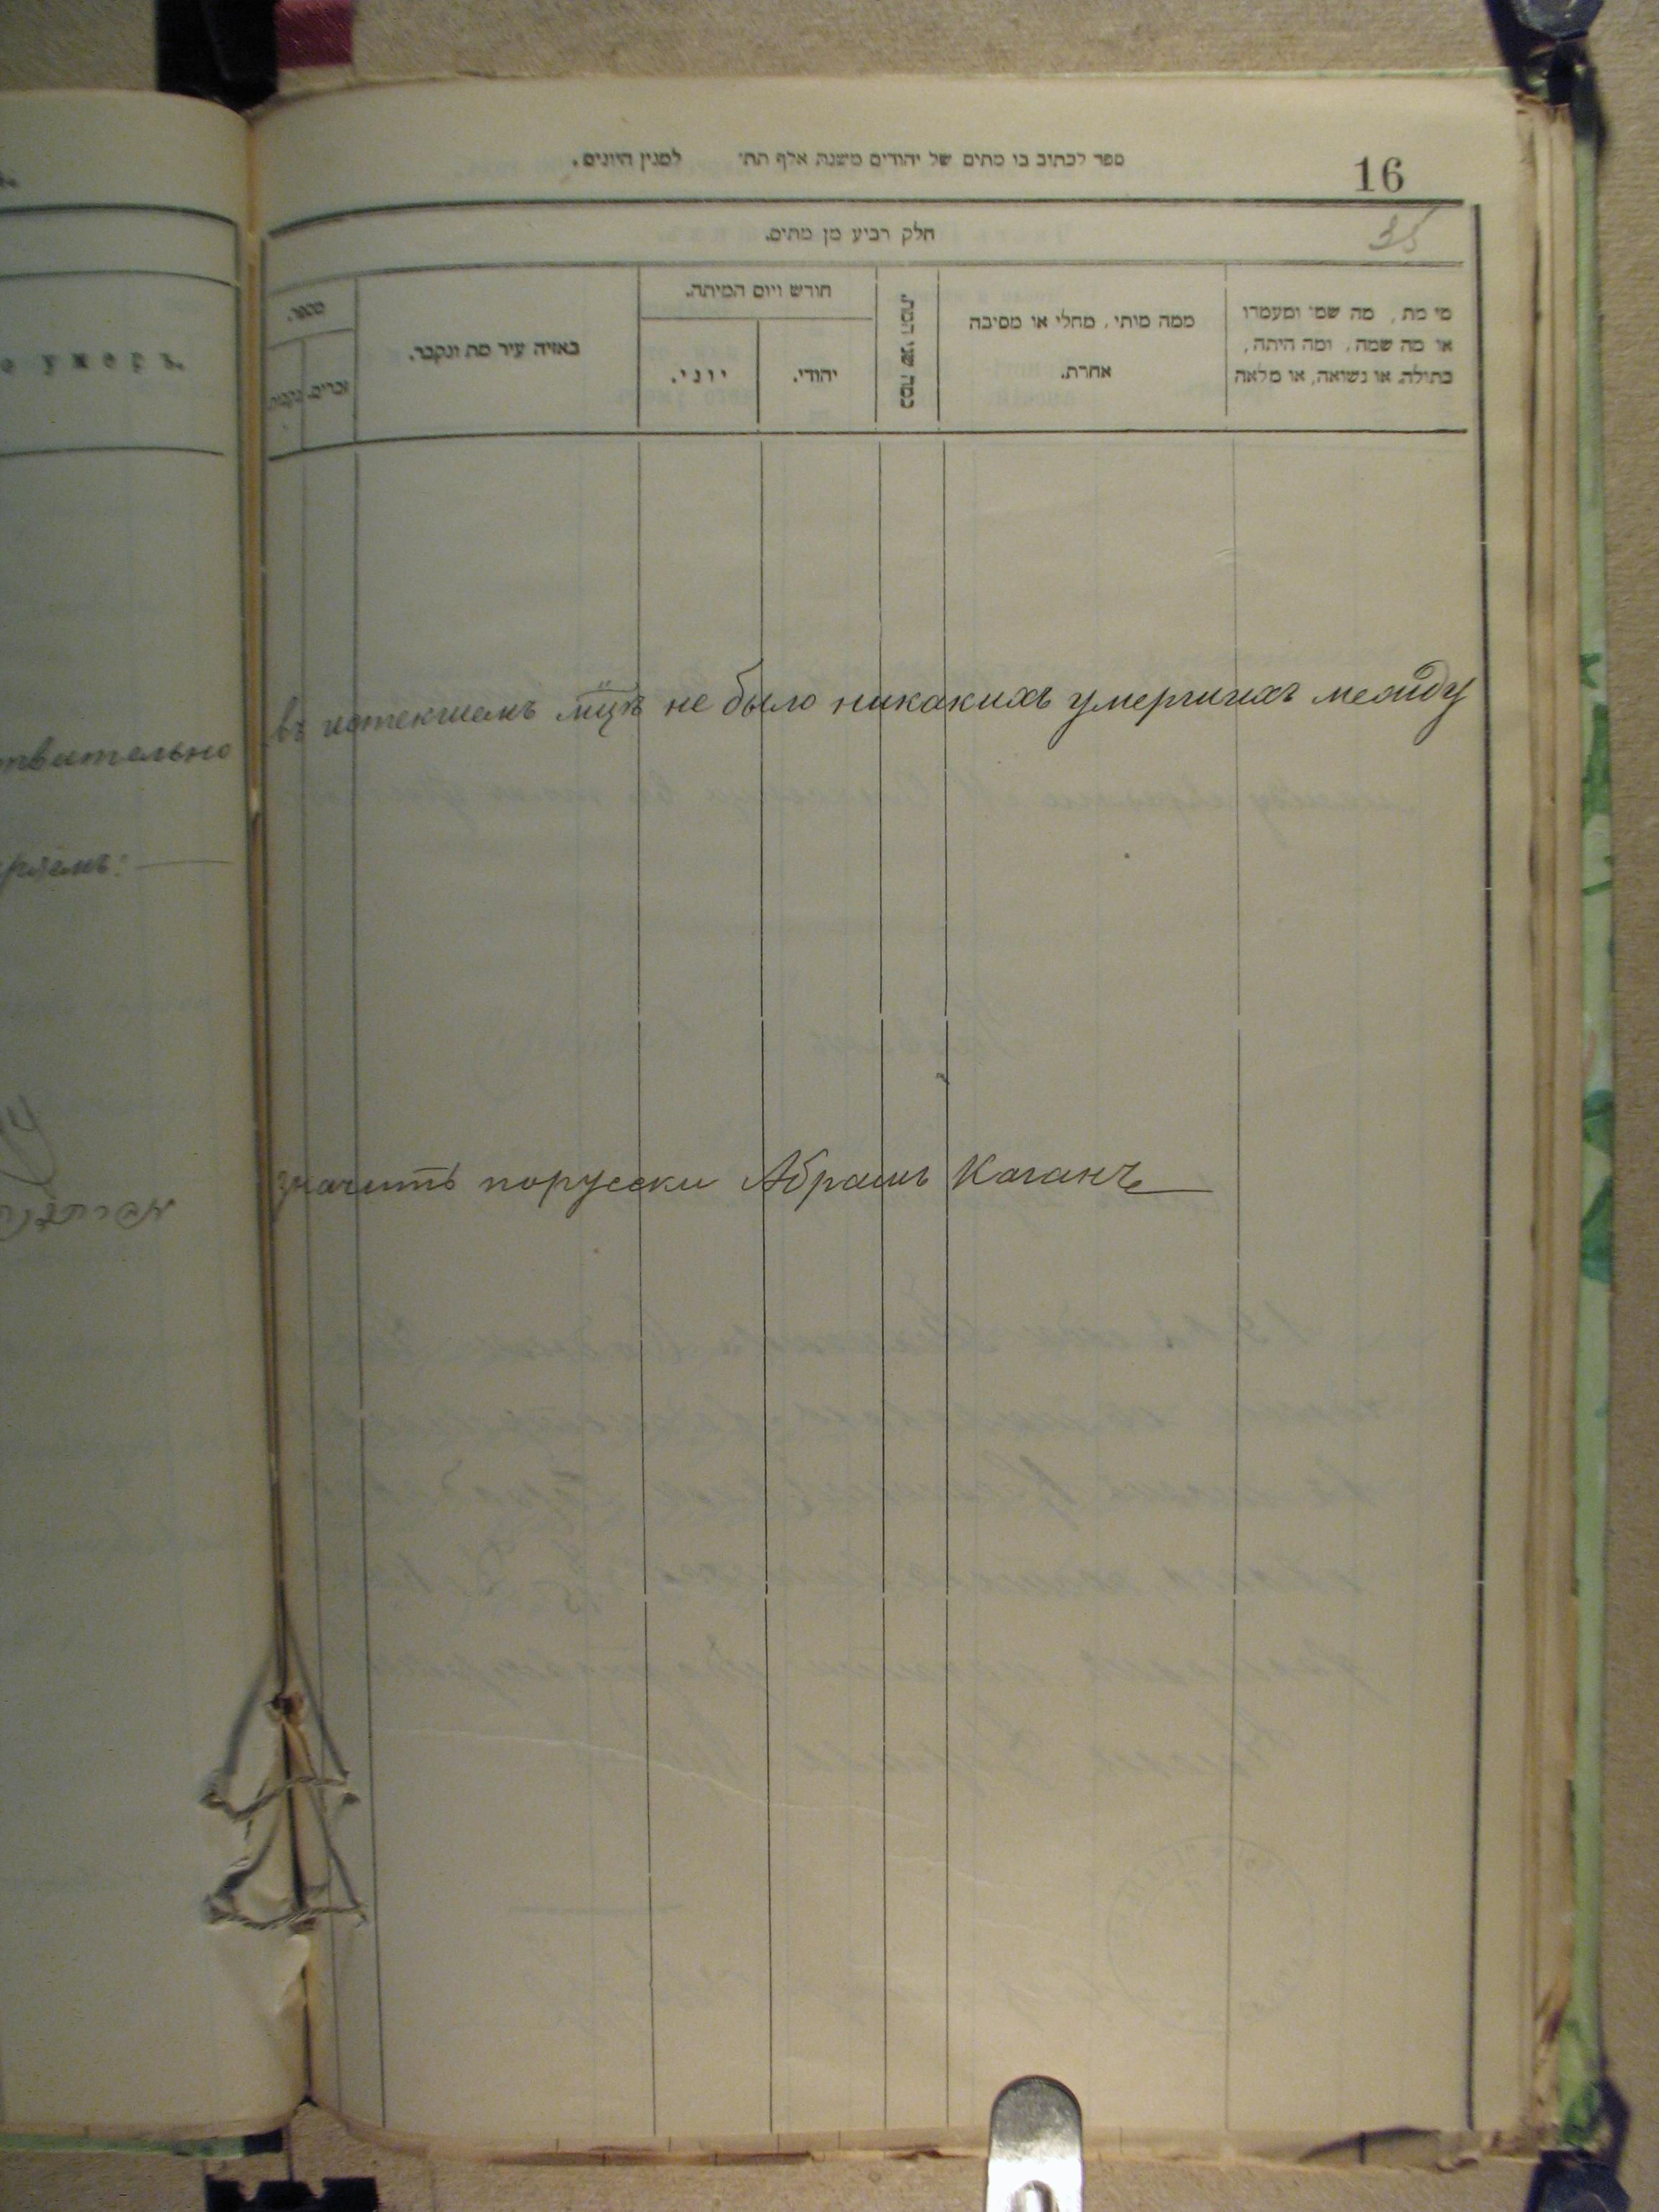 ספר לכתוב בו מתים של יהודים משנת אלף תת׳ למנין היונים.
16
35
חלק רביע מן מתים.
מספר.
זכרים.
באיזה עיר מת ונקבר.
חודש ויום המיתה.
יוני.
יהודי.
כמה שני המת.
ממה מותי, מחלי או מסיבה
אחרת.
מי מת, מה שמו ומעמדו
או מה שמה, ומה היתה,
בתולה, או נשואה, או מלאה
умеръ.
въ истекшемъ мцѣ не было никакихъ умершихъ между
значитъ порусски Абрамъ Каганъ